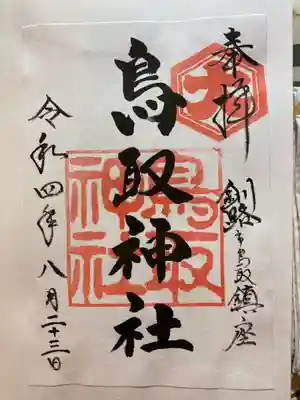 奉拝
釧路市鳥取鎮座
大
鳥取神社
鳥取神社
令和四年八月二十三日